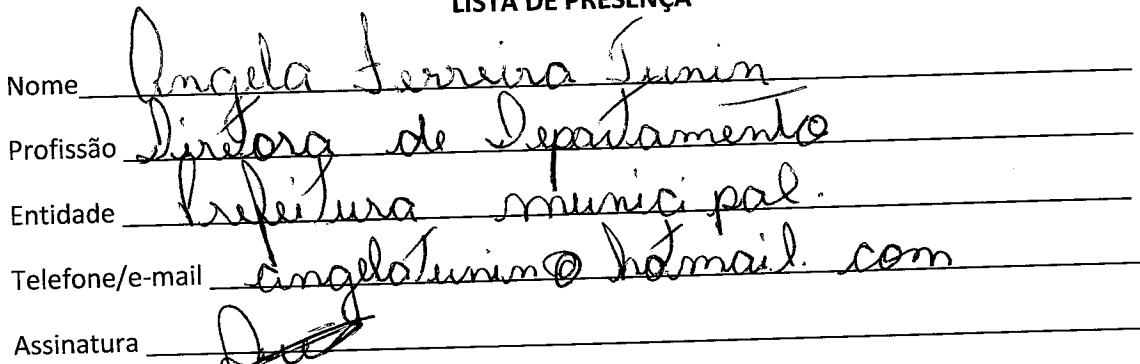 LISTA DE PRESENÇA
Nome Angela Ferreira Tunin
Profissão Diretora de Departamento
Entidade Prefeitura municipal.
Telefone/e-mail angelatunin@hotmail.com
Assinatura